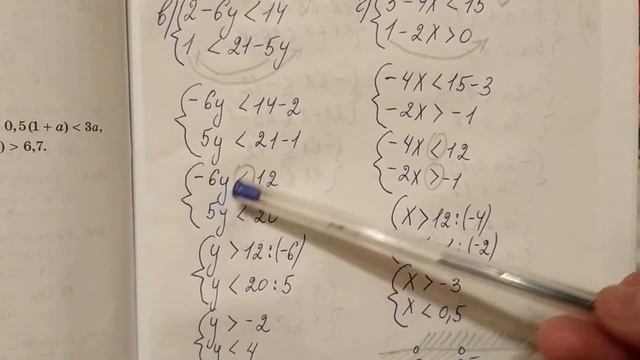 0,5(1 + a) < 3a,
) > 6,7.
в) { 2 - 6y < 14
1 < 21 - 5y
{ -6y < 14 - 2
5y < 21 - 1
{ -6y < 12
5y < 20
{ y > 12 : (-6)
y < 20 : 5
{ y > -2
y < 4
{ 3 - 4x < 15
1 - 2x > 0
{ -4x < 15 - 3
-2x > -1
{ -4x < 12
-2x > -1
{ x > 12 : (-4)
: (-2)
{ x > -3
x < 0,5